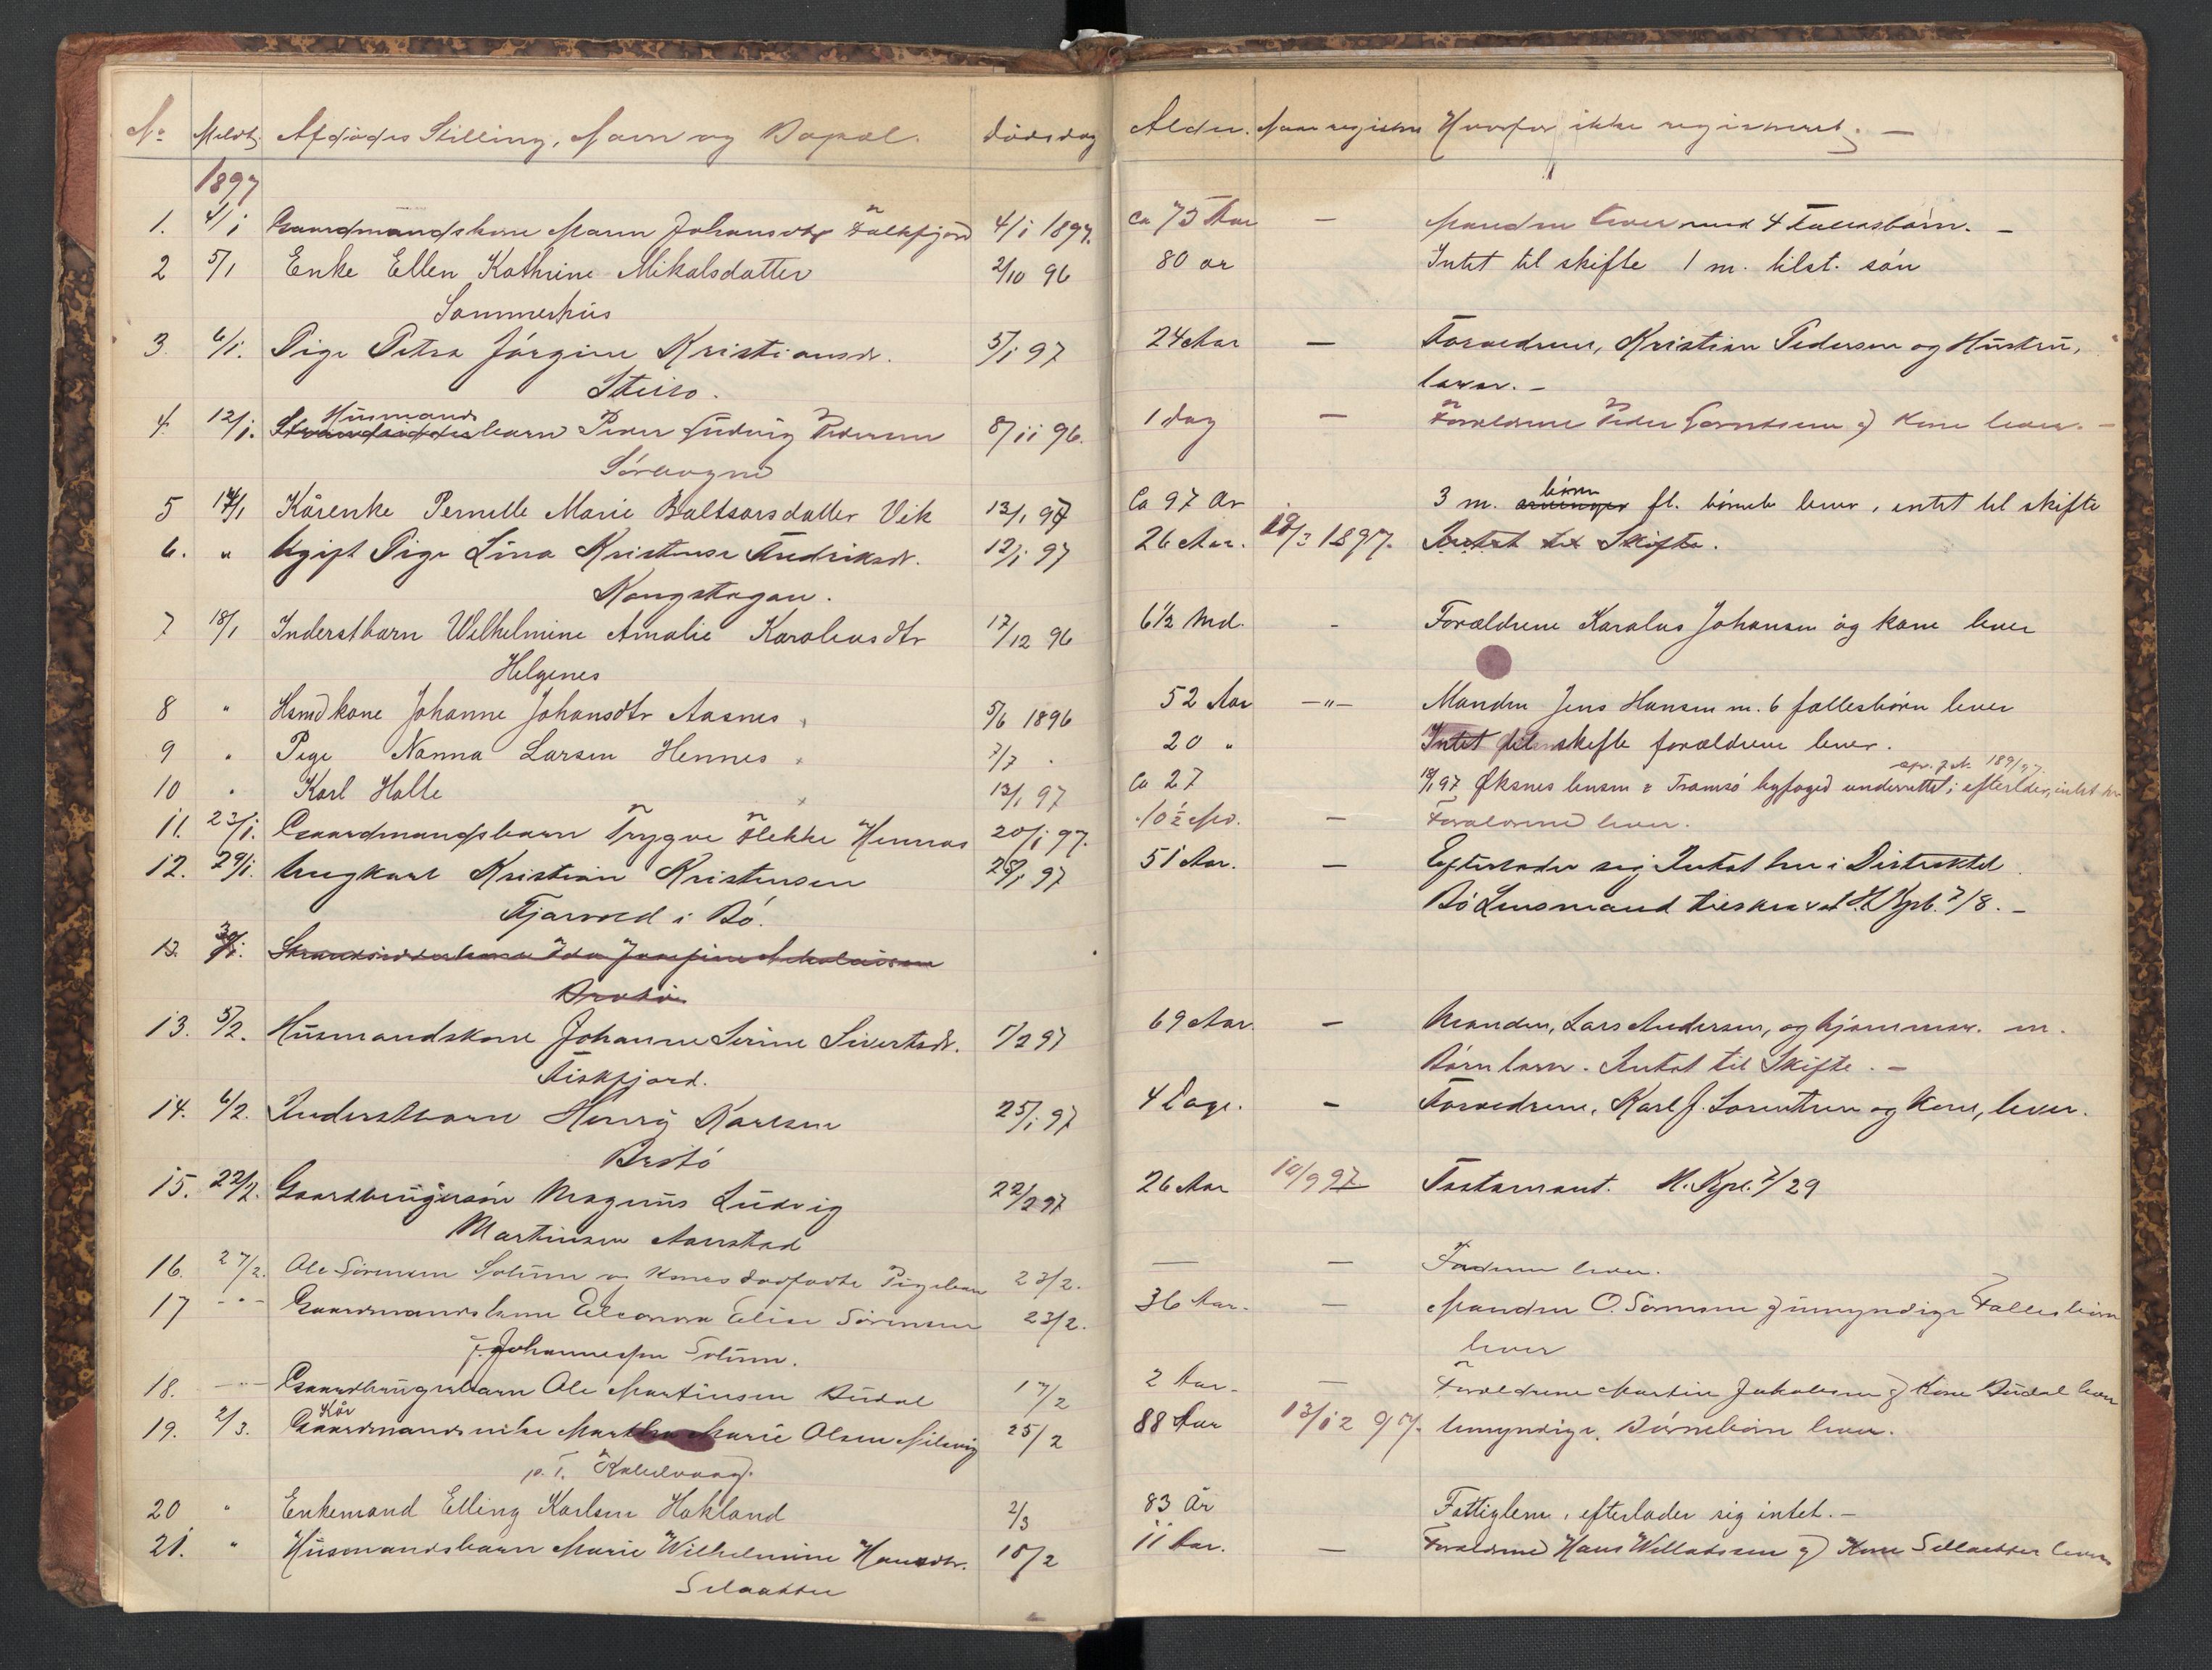 No Meldt. Afdødes Stilling, Navn og Bopæl. Dødsdag Alder. Naar registr. Hvorfor ikke registreret. —
1897
1. 4/1 Gaardmandskone Maren Johansdtr Falkfjord 4/1 1897. ca 75 Aar — Manden lever med 4 Fællesbørn. —
2 5/1 Enke Ellen Kathrine Mikalsdatter 2/10 96 80 ar Intet til skifte 1 m. tilst. søn
Sommerhus
3. 6/1. Pige Petra Jørgine Kristiansdr. 5/1 97 24 Aar — Forældrene, Kristian Pedersen og Hustru,
Steiro. lever. —
Husmands
4. 12/1. Strandsidderbarn Peder Ludvig Pedersen 8/11 96. 1 Dag — Forældrene Peder Lorentsen og Kone lever. —
5 14/1 Kårenke Pernille Marie Baltsarsdatter Vik 13/1 97 Ca 97 Ar 3 m. børn fl. børneb lever, intet til skifte
6. " Ugift Pige Lina Kristense Fredriksdr. 12/1 97 26 Aar. 18/3 1897. Intet til Skifte.
Kongstrgan.
7 18/1 Inderstbarn Wilhelmine Amalie Karoleusdtr 17/12 96 6½ Md. - Forældrene Karolus Johansen og kone lever
Helgenes
8 " Hsmdkone Johanne Johansdtr Aasnes 5/6 1896 52 Aar —"— Manden Jens Hansen m. 6 fællesbørn lever
9 " Pige Nanna Larsen Hennes 7/7 20 " Intet til skifte forældrene lever.
10 " Karl Holte 13/1 97 Ca 27 18/1 97 Øksnes lensm & Tromsø byfoged underrettet; efterlader intet her
11. 23/1. Gaardmandsbarn Trygve Flekke Hennes 20/1 97. 10½ Md. — Forældrene lever.
12. 29/1. Ungkarl Kristian Kristensen 28/1 97 51 Aar. — Efterlader sig Intet her i Distriktet
Fjærvoll i Bø. Bø Lensmand tilskrevet H. Kpb. 7/8. —
13. 30/1. Strandsidderkone Ida Josefine Nikolaisen
Brotø
13. 5/2. Husmandskone Johanne Serine Sivertsdr. 1/2 97 69 Aar. — Manden, Lars Andersen, og hjemmev. m.
Fiskfjord. Børn lever. Intet til Skifte. —
14. 6/2. Inderstbarn Henrij Karlsen 25/1 97 4 Dage. — Forældrene, Karl J. Lorentsen og Kone, lever.
Brotø
15. 22/2. Gaardbrugersøn Magnus Ludvig 22/2 97 26 Aar 10/9 97 Testament. H. Kpl. 7/29
Martinsen Aanstad
16. 27/2. Ole Sørensen Solum og Kones dødfødte Pigebarn 23/2. — — Faderen lever.
17 —"— Gaardmandskone Eleonora Elise Sørensen 23/2. 36 Aar. — Manden O. Sørensen og umyndige Fællesbørn
f. Johannessen Solum. lever
18. —"— Gaardbrugerbarn Ole Martinsen Budal 17/2 2 Aar. — Forældrene Martin Jakobsen og Kone Budal lever
Kår
19. 2/3. Gaardmandsenke Martha Marie Olsen Milnvig 25/2 88 Aar 13/12 97. Umyndige Børnebørn lever.
p. T. Kaljordvaag.
20 " Enkemand Elling Karlsen Hokland 2/3 83 År Fattiglem, efterlader sig intet. —
21. " Husmandsbarn Marie Wilhelmine Hansdtr. 10/2 11 Aar. — Forældrene Hans Willatssen og Kone Sellaatter lever
Selaatter